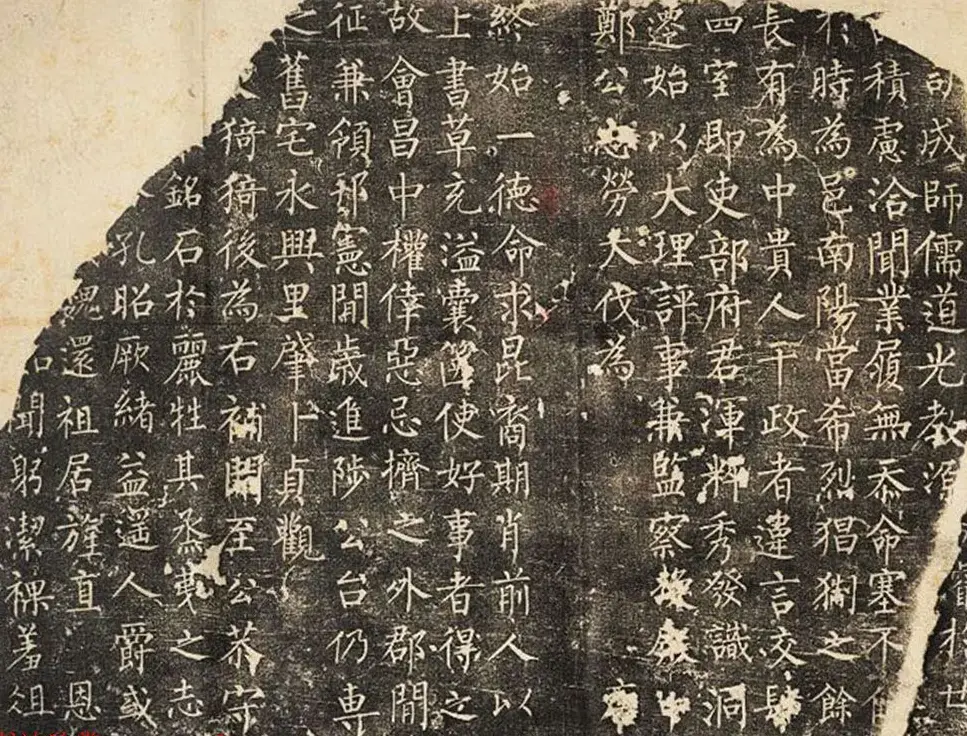 司成師儒道光教源
積慮洽聞業履無忝命塞不
於時為邑南陽當希烈猖猘之餘
長有為中貴人干政者違言交肆
四室即吏部府君渾粹秀發識洞
遷始以大理評事兼監察中
鄭公忠勞大伐為
終始一德命求昆裔期肖前人以
上書草充溢囊篋使好事者得之
故會昌中權倖惡忌擠之外郡間
征兼領邦憲開歲進陟公台仍專
之舊宅永興里肇卜貞觀
猗猗後為右補闕至公恭守
銘石於麗牲其烝夷之志
孔昭厥緒益遥人爵或
還祖居旌直恩
聞躬潔祼羞俎